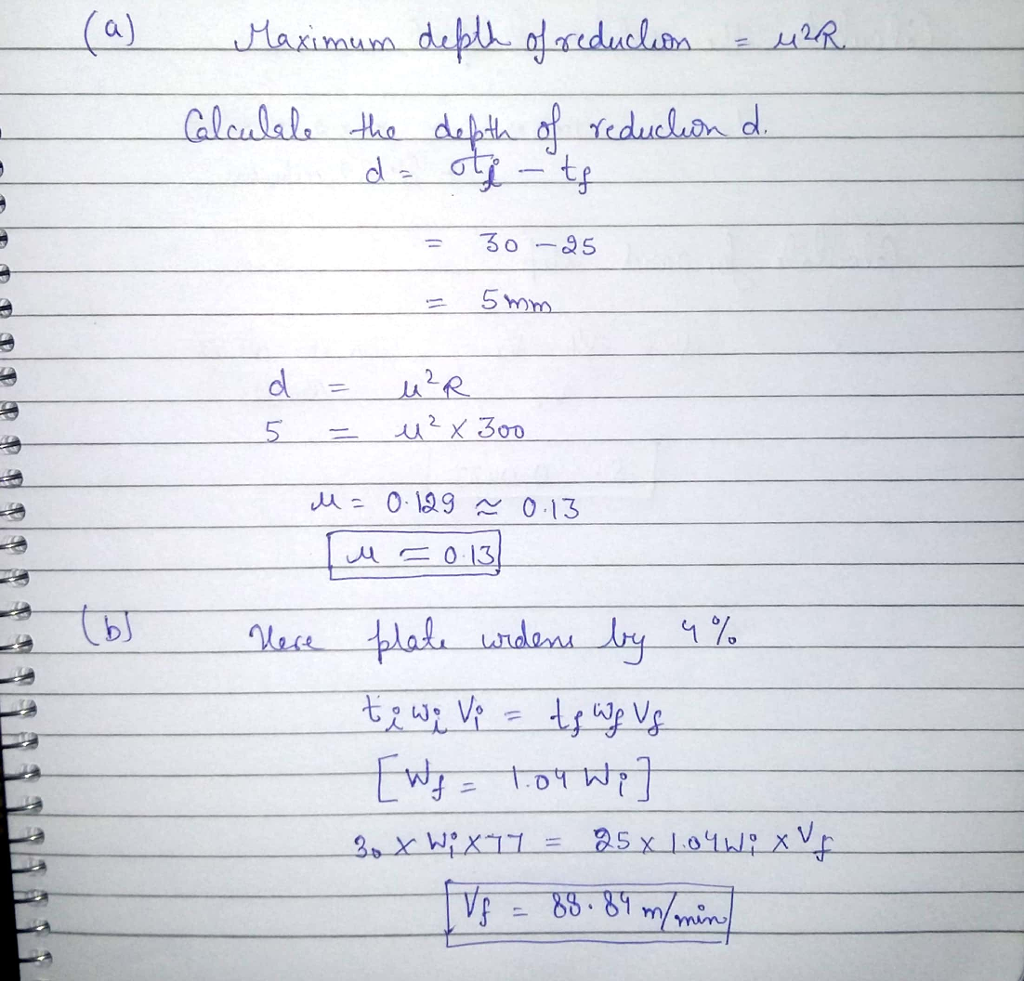 (a) Maximum depth of reduction = μ²R
Calculate the depth of reduction d.
d = ti - tf
= 30 - 25
= 5mm
d = μ²R
5 = μ² x 300
μ = 0.129 ≈ 0.13
μ = 0.13
(b) Here plate widens by 4%
ti wi Vi = tf wf Vf
[Wf = 1.04 Wi]
30 x Wi x 77 = 25 x 1.04 Wi x Vf
Vf = 88.84 m/min